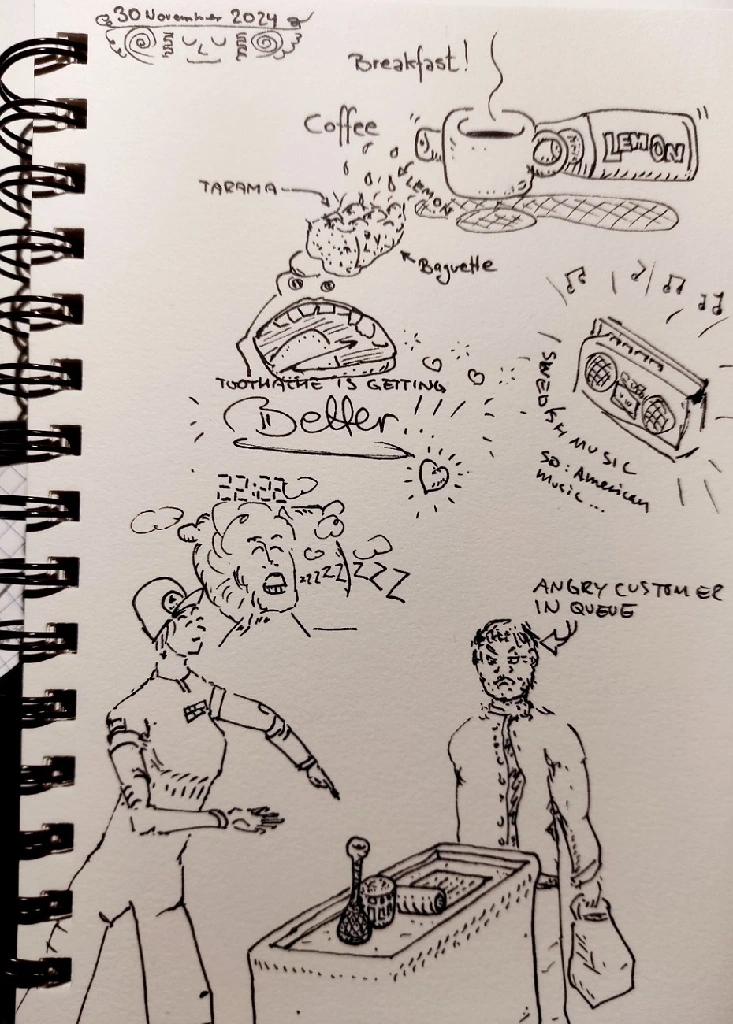 30 November 2024
Breakfast!
Coffee
LEMON
TARAMA
LEMON
Baguette
TOOTHACHE IS GETTING
Better
MUSIC
SO: American
music...
22:22
zzzZZZZ
ANGRY CUSTOMER
IN QUEUE